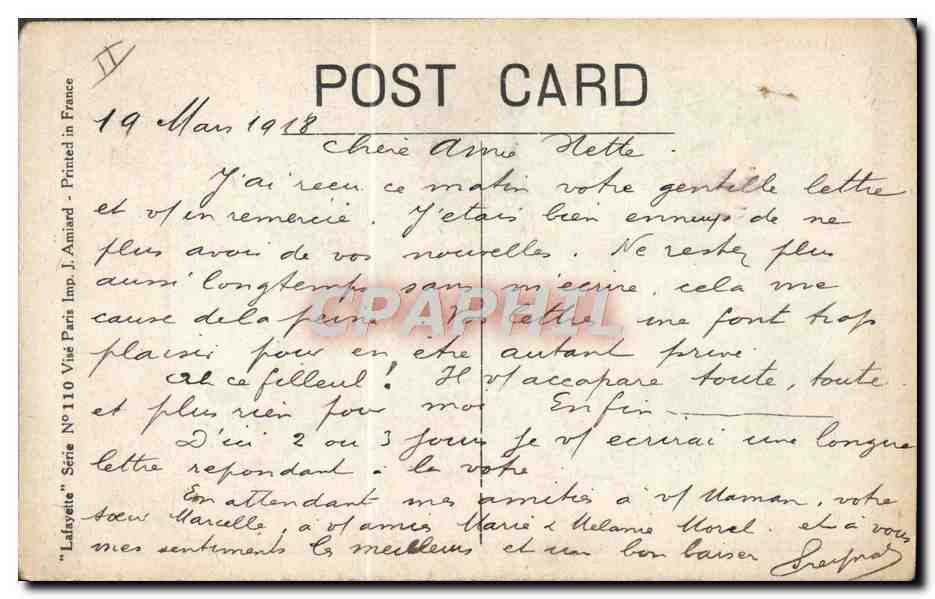 II
POST CARD
19 Mars 1918
Chère Amie Nette.
J'ai recu ce matin votre gentille lettre
et v/ en remercie. J'etais bien ennuyé de ne
plus avoir de vos nouvelles. Ne restez plus
aussi longtemps sans m'écrire, cela me
cause de la peine. Vos lettres me font trop
plaisir pour en être autant privé.
Ah ce filleul! Il v/ accapare toute, toute
et plus rien pour moi. Enfin
D'ici 2 ou 3 jours je v/ ecrirai une longue
lettre repondant à la votre
En attendant mes amitiés à v/ Maman, votre
sœur Marcelle, à v/ amies Marie & Melanie Morel et à vous
mes sentiments les meilleurs et un bon baiser
"Lafayette" Série N° 110 Visé Paris Imp. J. Amiard - Printed in France
CPAPHIL